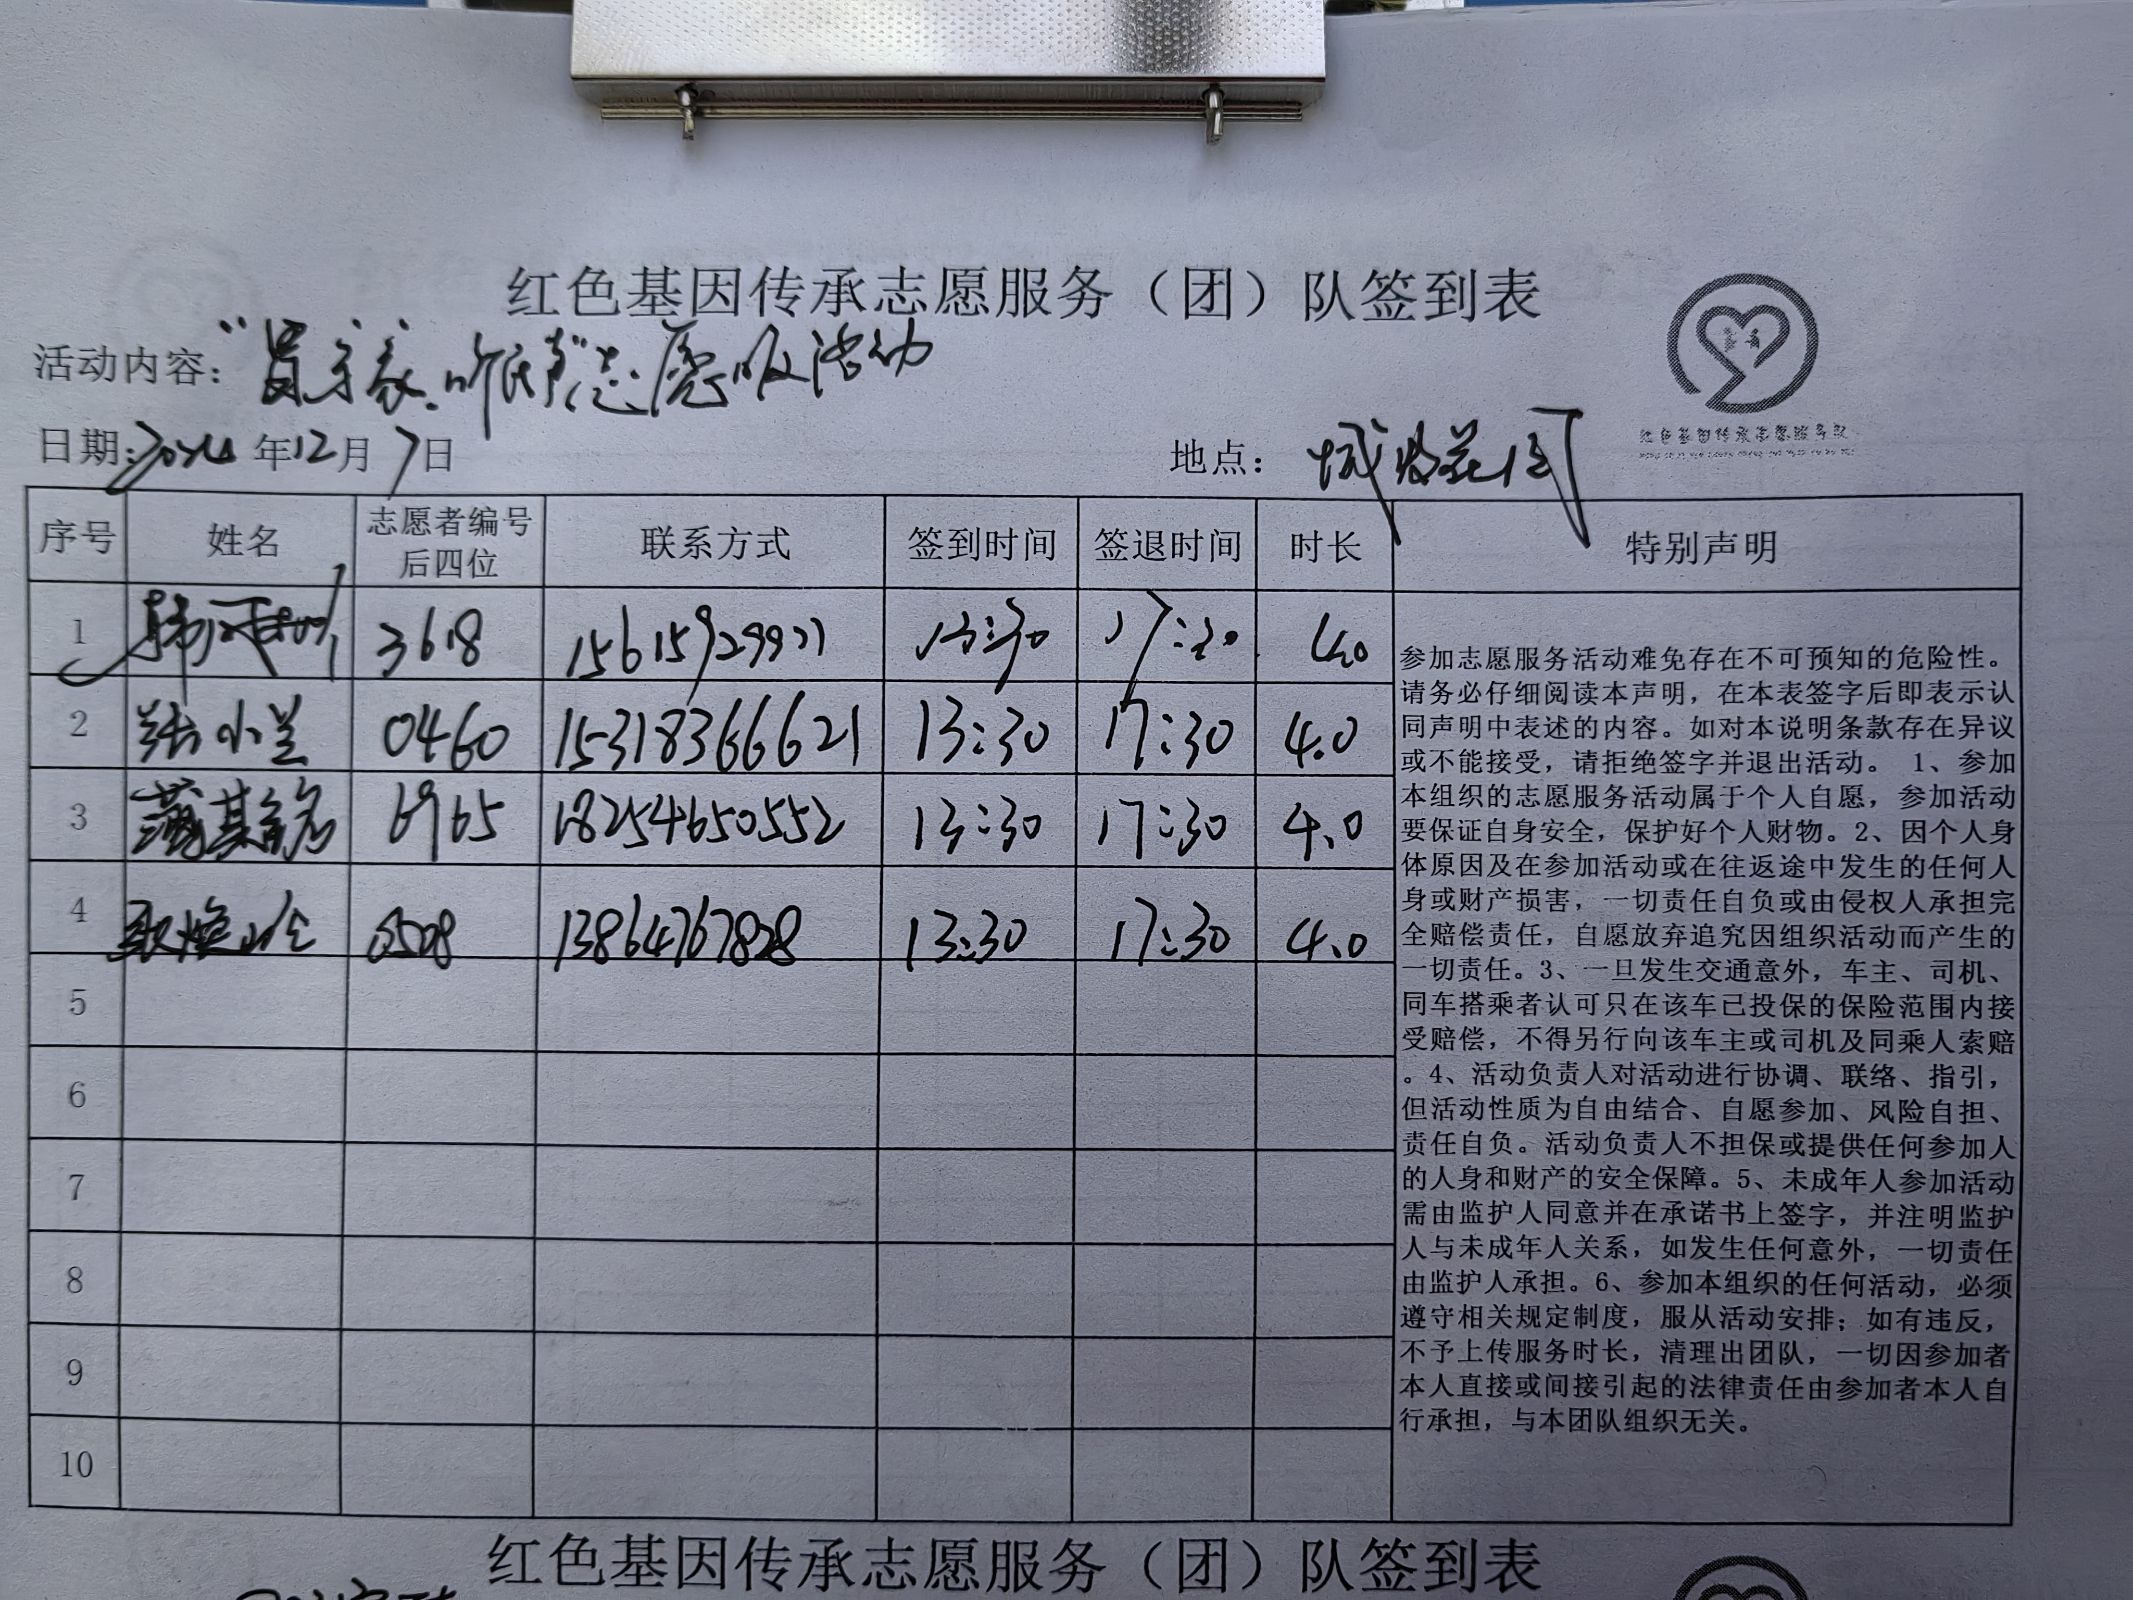 红色基因传承志愿服务（团）队签到表
活动内容：“ 志愿服活动
日期：2024年12月7日 地点：城 花园
序号 姓名 志愿者编号后四位 联系方式 签到时间 签退时间 时长 特别声明
1 韩 3618 13:30 17:30 4.0
2 张小兰 0460 15318366621 13:30 17:30 4.0
3 6965 18254650552 13:30 17:30 4.0
4 0508 13864767828 13:30 17:30 4.0
5
6
7
8
9
10
参加志愿服务活动难免存在不可预知的危险性。
请务必仔细阅读本声明，在本表签字后即表示认
同声明中表述的内容。如对本说明条款存在异议
或不能接受，请拒绝签字并退出活动。 1、参加
本组织的志愿服务活动属于个人自愿，参加活动
要保证自身安全，保护好个人财物。2、因个人身
体原因及在参加活动或在往返途中发生的任何人
身或财产损害，一切责任自负或由侵权人承担完
全赔偿责任，自愿放弃追究因组织活动而产生的
一切责任。3、一旦发生交通意外，车主、司机、
同车搭乘者认可只在该车已投保的保险范围内接
受赔偿，不得另行向该车主或司机及同乘人索赔
。4、活动负责人对活动进行协调、联络、指引，
但活动性质为自由结合、自愿参加、风险自担、
责任自负。活动负责人不担保或提供任何参加人
的人身和财产的安全保障。5、未成年人参加活动
需由监护人同意并在承诺书上签字，并注明监护
人与未成年人关系，如发生任何意外，一切责任
由监护人承担。6、参加本组织的任何活动，必须
遵守相关规定制度，服从活动安排；如有违反，
不予上传服务时长，清理出团队，一切因参加者
本人直接或间接引起的法律责任由参加者本人自
行承担，与本团队组织无关。
红色基因传承志愿服务队
红色基因传承志愿服务（团）队签到表